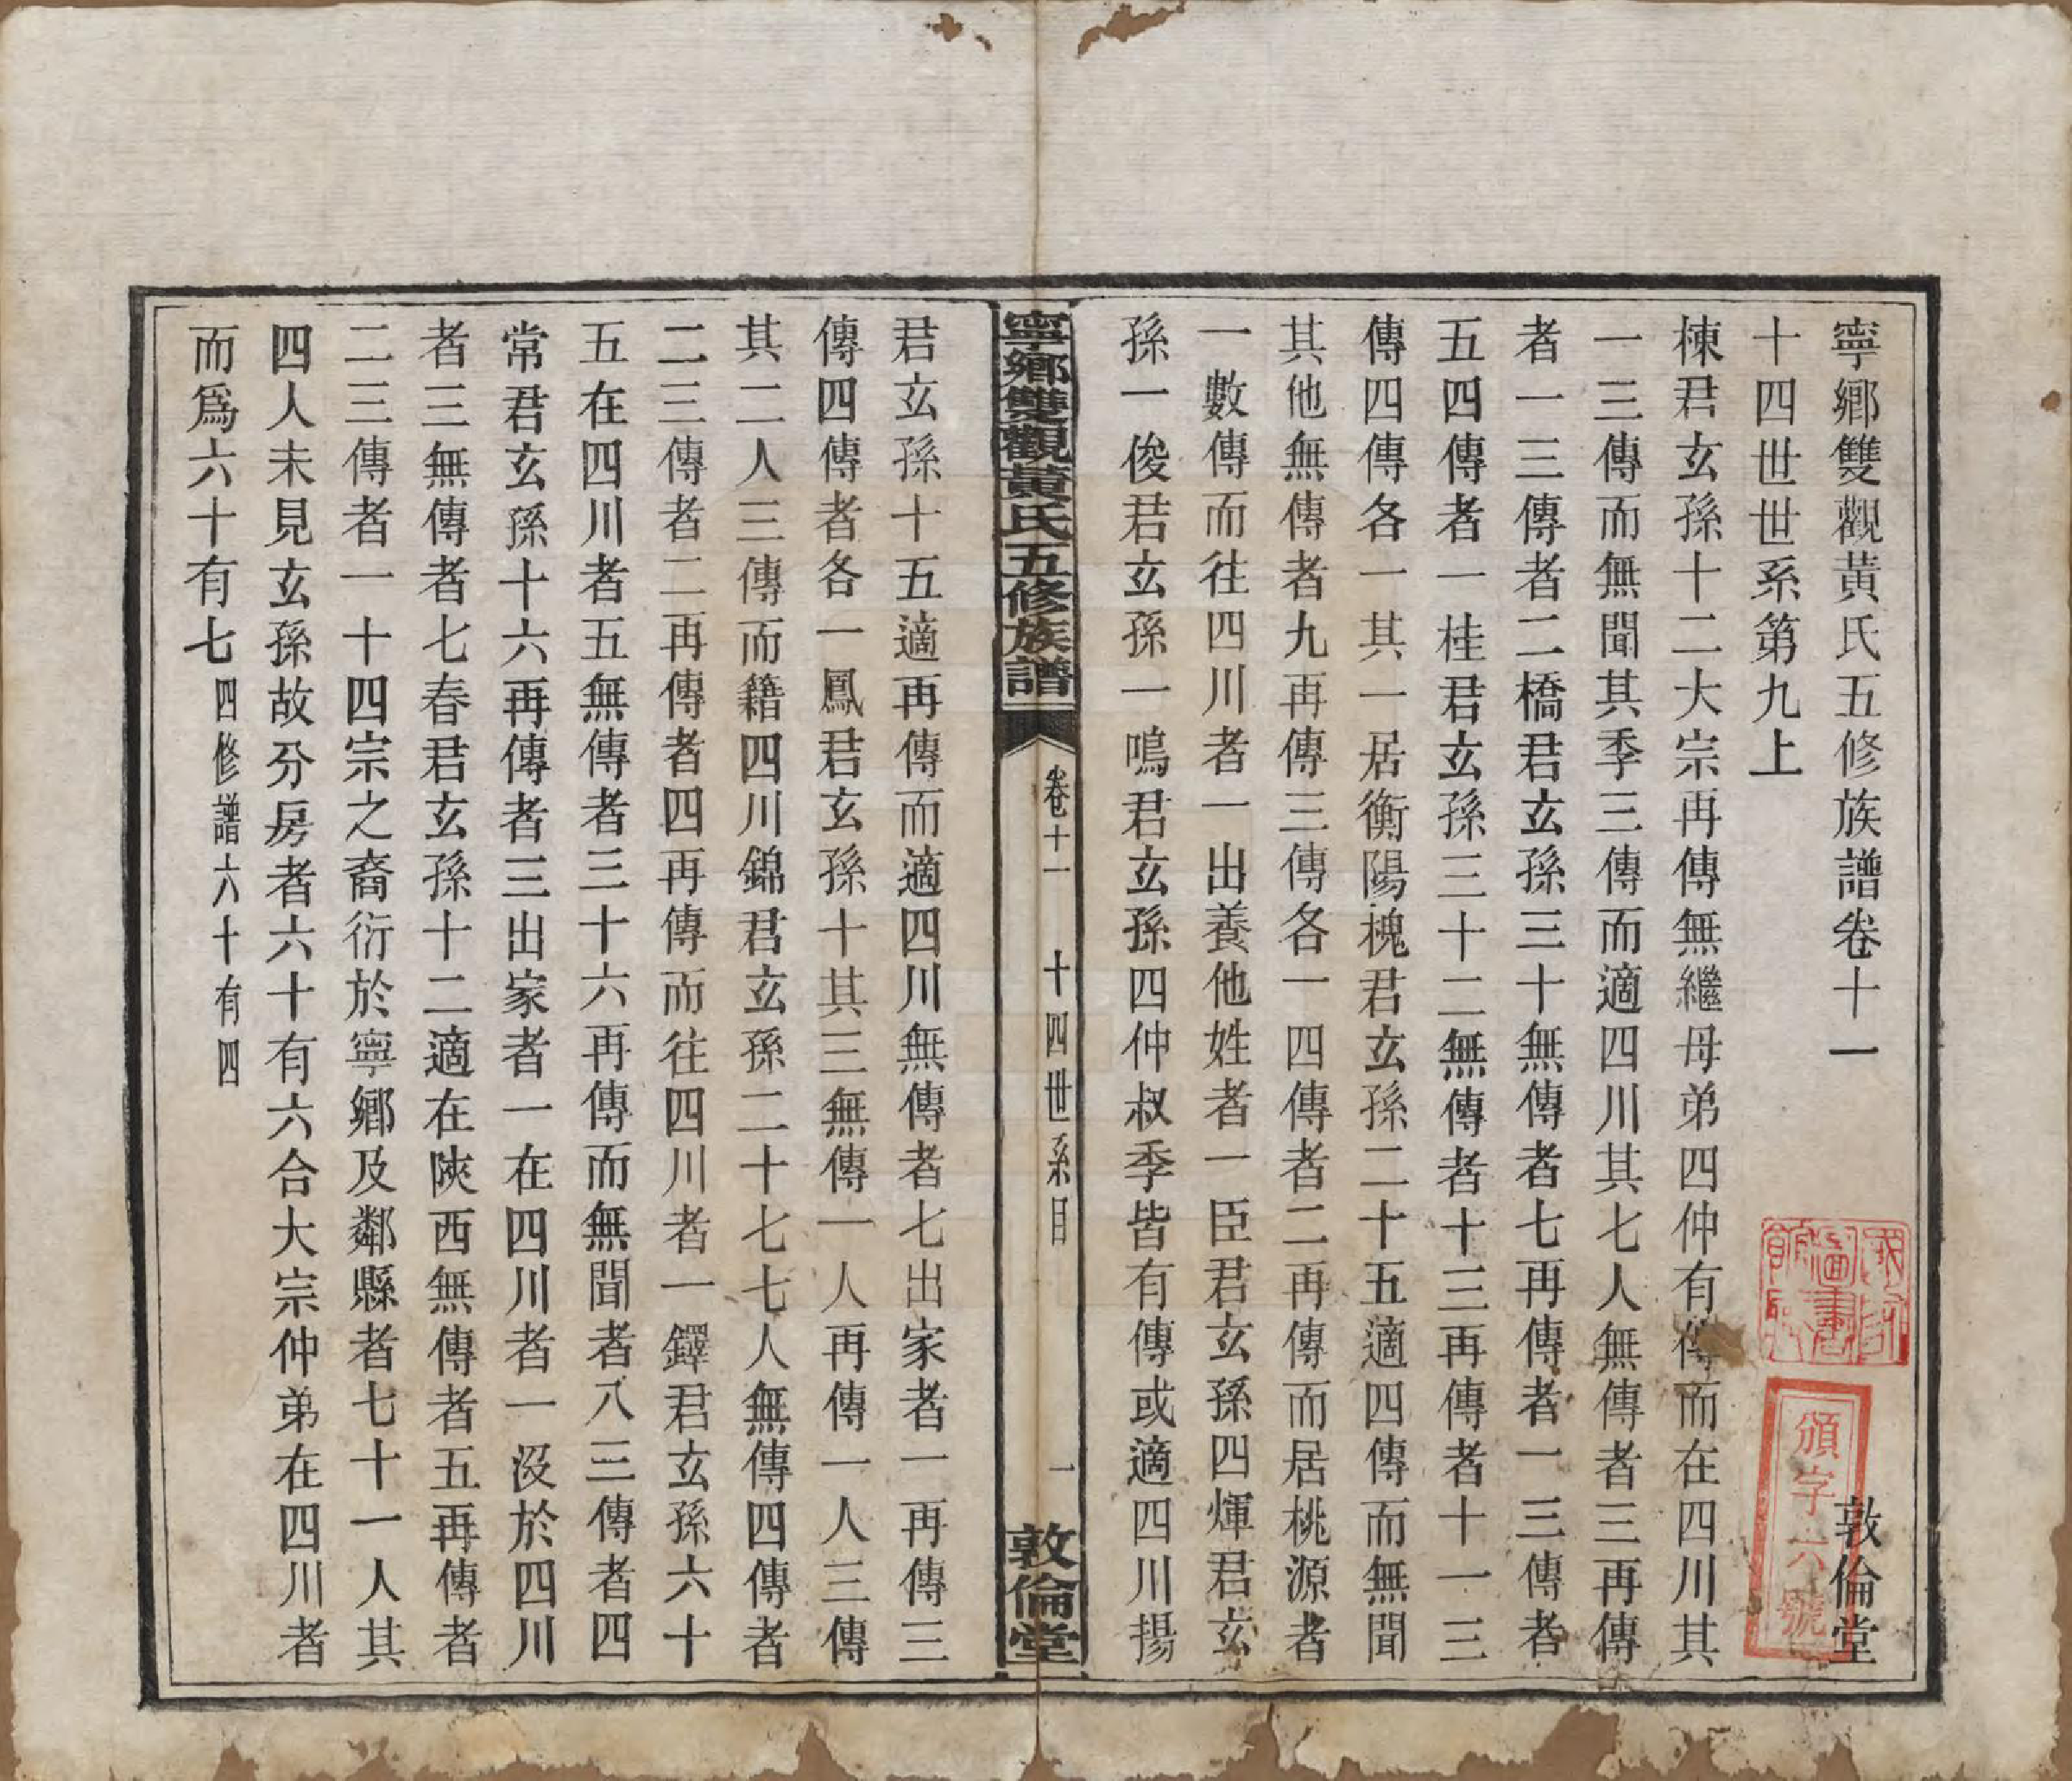 寧鄉雙觀黃氏五修族譜卷十一 敦倫堂
十四世世系第九上
棟君玄孫十二大宗再傳無繼母弟四仲有傳而在四川其
一三傳而無聞其季三傳而適四川其七人無傳者三再傳
者一三傳者二橋君玄孫三十無傳者七再傳者一三傳者
五四傳者一桂君玄孫三十二無傳者十三再傳者十一三
傳四傳各一其一居衡陽槐君玄孫二十五適四傳而無聞
其他無傳者九再傳三傳各一四傳者二再傳而居桃源者
一數傳而往四川者一出養他姓者一臣君玄孫四煇君玄
孫一俊君玄孫一鳴君玄孫四仲叔季皆有傳或適四川揚
寧鄉雙觀黃氏五修族譜 卷十一 十四世系目 一 敦倫堂
君玄孫十五適再傳而適四川無傳者七出家者一再傳三
傳四傳者各一鳳君玄孫十其三無傳一人再傳一人三傳
其二人三傳而籍四川錦君玄孫二十七七人無傳四傳者
二三傳者二再傳者四再傳而往四川者一鐸君玄孫六十
五在四川者五無傳者三十六再傳而無聞者八三傳者四
常君玄孫十六再傳者三出家者一在四川者一沒於四川
者三無傳者七春君玄孫十二適在陝西無傳者五再傳者
二三傳者一十四宗之裔衍於寧鄉及鄰縣者七十一人其
四人未見玄孫故分房者六十有六合大宗仲弟在四川者
而爲六十有七四修譜六十有四
國立北平圖書館所藏
頒字六號